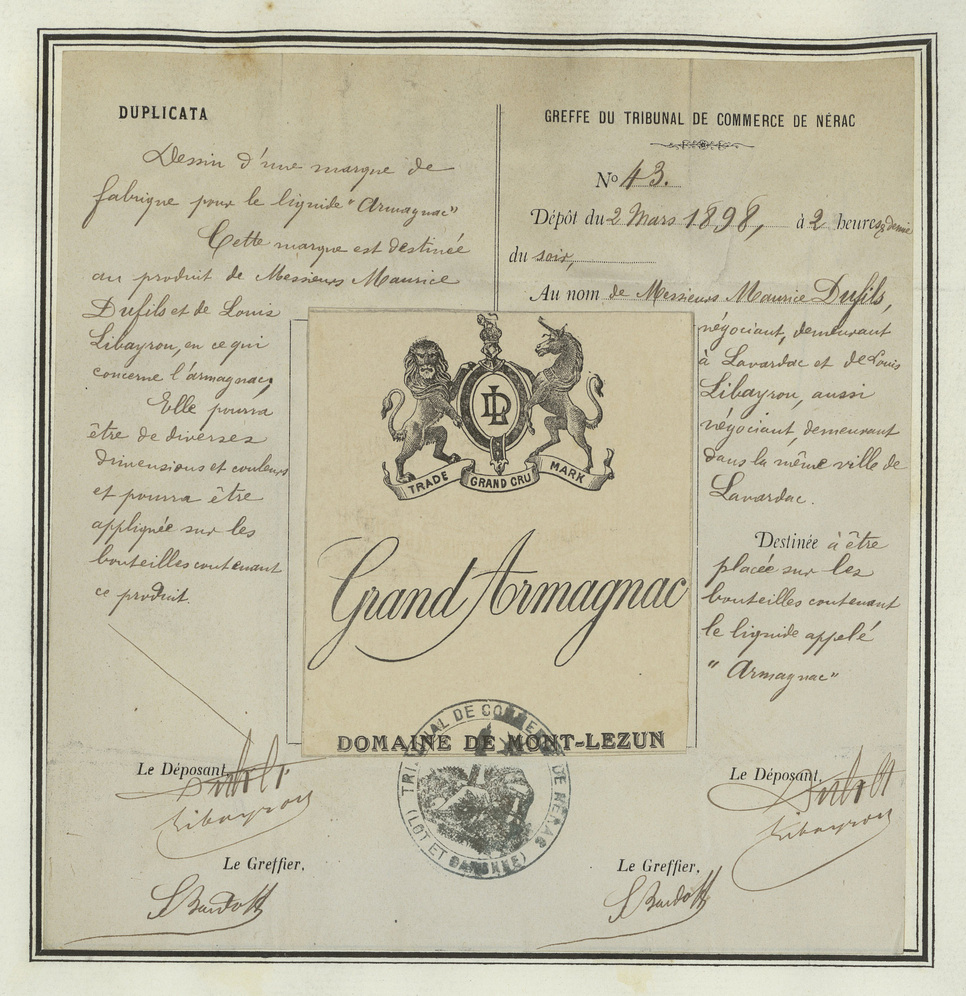 DUPLICATA
Dessin d'une marque de
fabrique pour le liquide "Armagnac"
Cette marque est destinée
au produit de Messieurs Maurice
Dufils et de Louis
Libayrou, en ce qui
concerne l'armagnac,
Elle pourra
être de diverses
dimensions et couleurs
et pourra être
appliquée sur les
bouteilles contenant
ce produit.
Le Déposant,
Libayrou
Le Greffier,
GREFFE DU TRIBUNAL DE COMMERCE DE NÉRAC
No 43.
Dépôt du 2 Mars 1898, à 2 heures & demie
du soir,
Au nom de Messieurs Maurice Dufils,
négociant, demeurant
à Lavardac et de Louis
Libayrou, aussi
négociant, demeurant
dans la même ville de
Lavardac.
Destinée à être
placée sur les
bouteilles contenant
le liquide appelé
"Armagnac"
Le Déposant,
Libayrou
Le Greffier,
LD
TRADE GRAND CRU MARK
Grand Armagnac
DOMAINE DE MONT-LEZUN
TRIBUNAL DE COMMERCE DE NÉRAC
(LOT ET GARONNE)